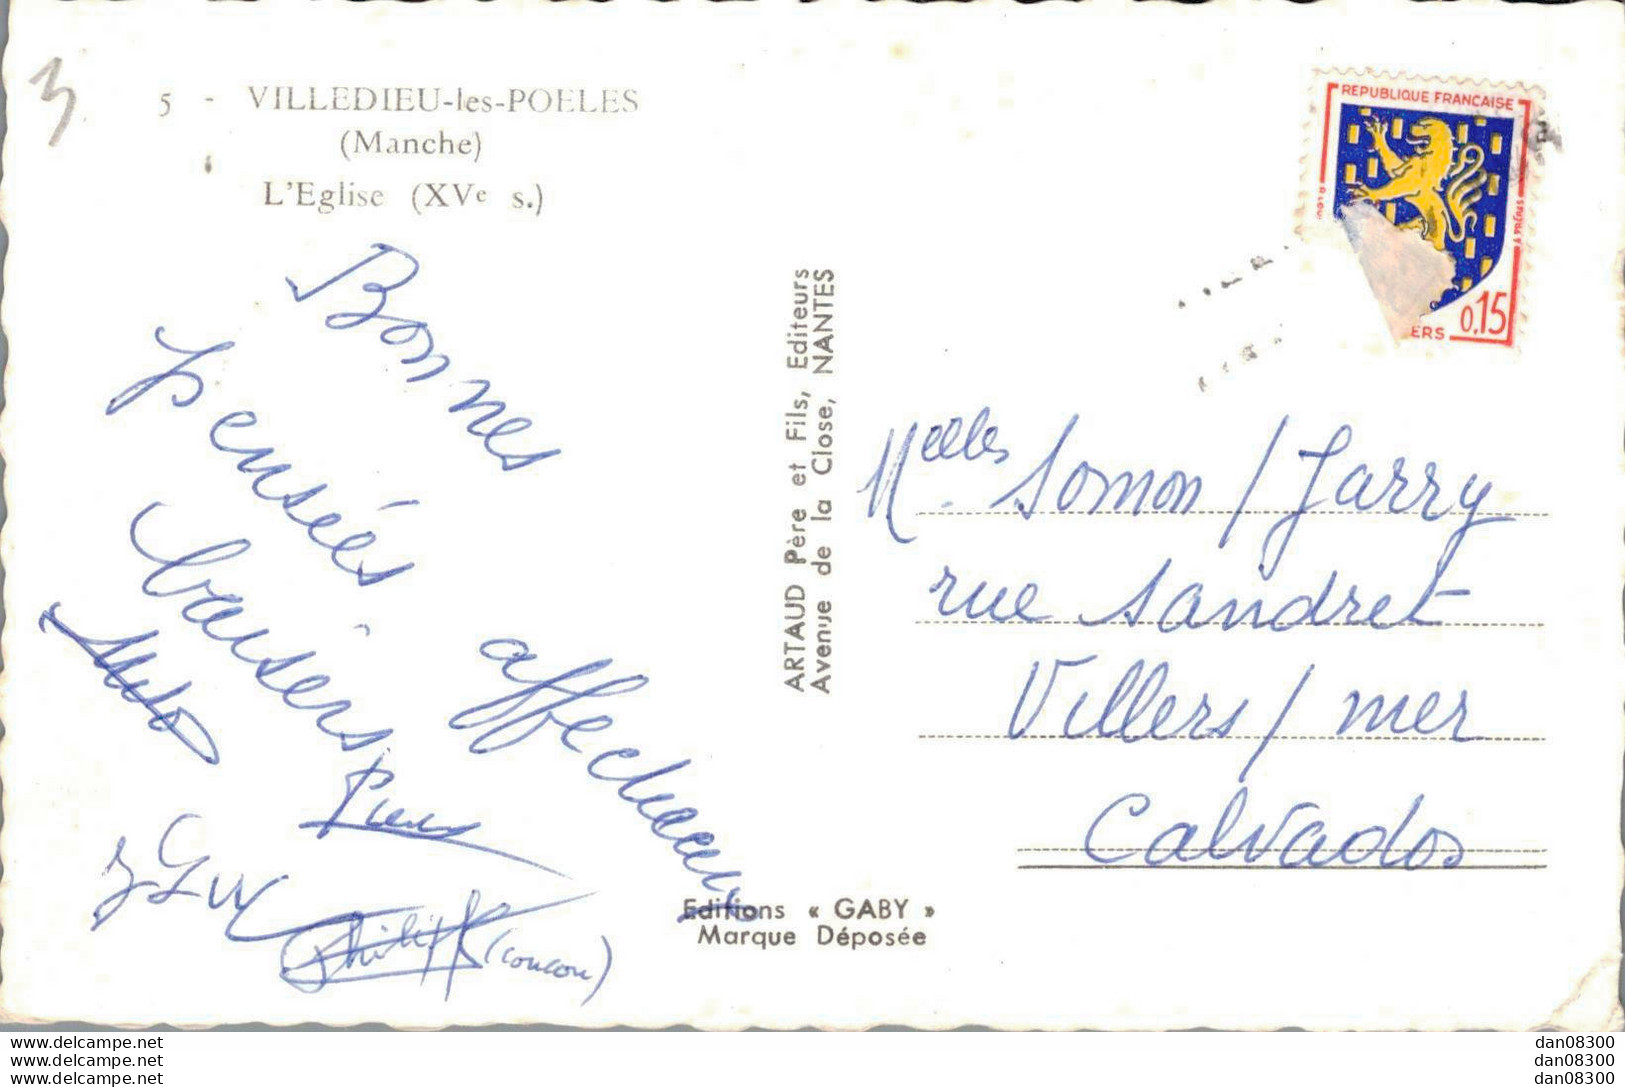 3
5 - VILLEDIEU-les-POELES
(Manche)
L'Eglise (XVe s.)
Bonnes
pensées affectueux
baisers
Guy
Philippe (coucou)
ARTAUD Père et Fils, Editeurs
Avenue de la Close, NANTES
Editions « GABY »
Marque Déposée
REPUBLIQUE FRANCAISE
ERS 0,15
Melles Somon / Jarry
rue Sandret
Villers / mer
Calvados
www.delcampe.net
www.delcampe.net
www.delcampe.net
dan08300
dan08300
dan08300